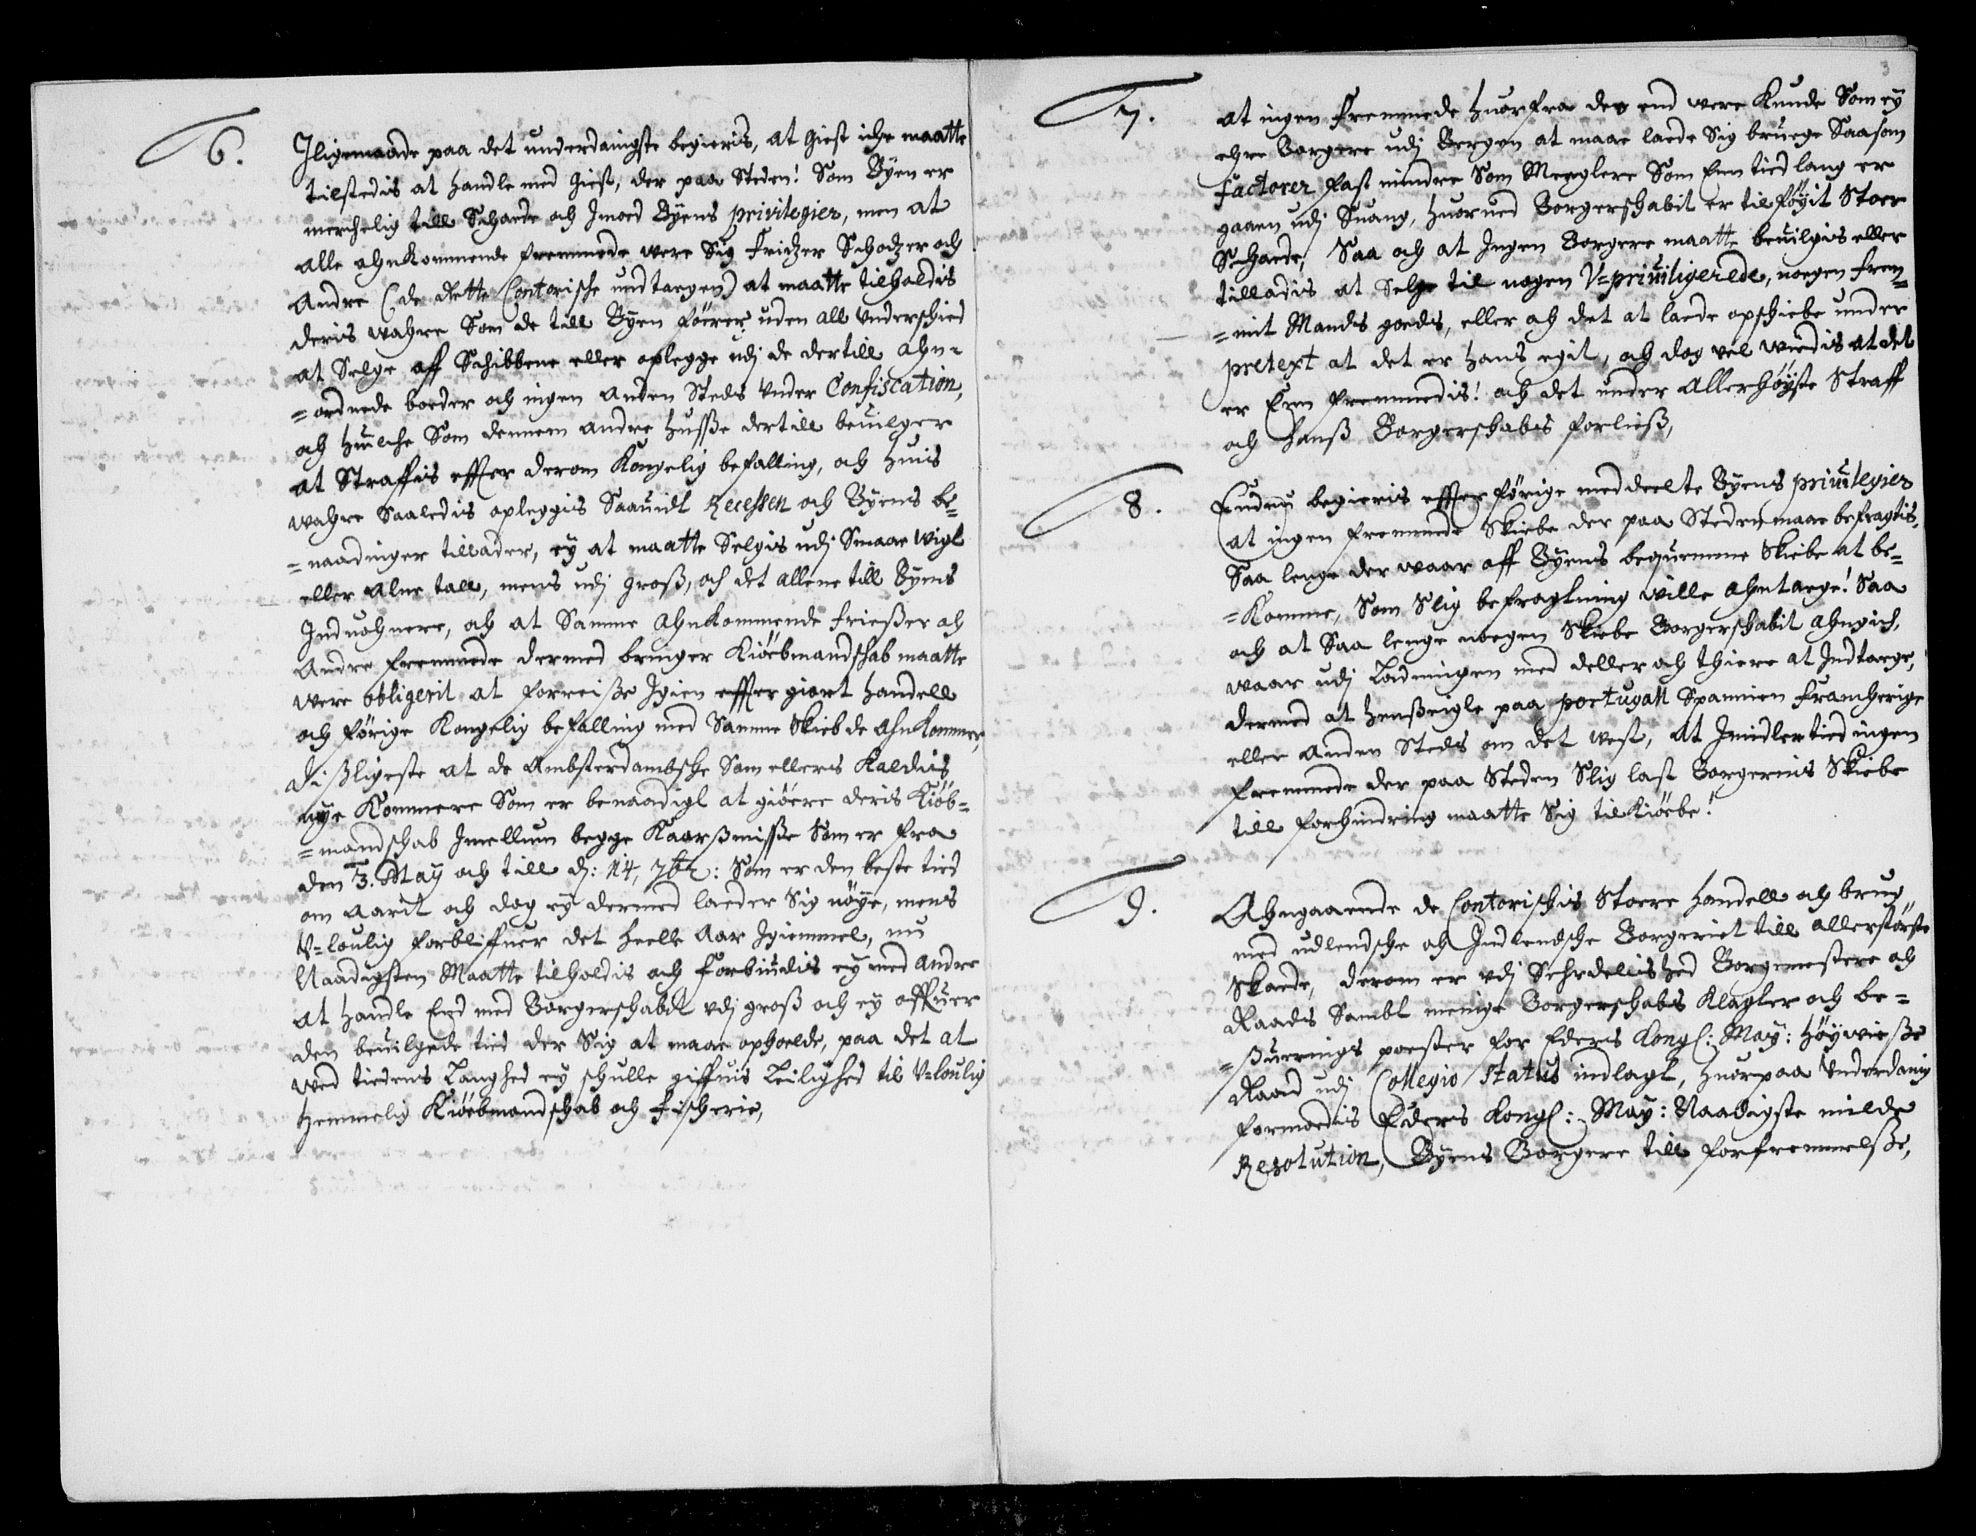 6.
Iligemaade paa det underdanigste begieris, at giest iche maatte
tilstedis at handle med giest, der paa Steden! Som Byen er
merchelig till Schaede och Imoed Byens privilegier, men at
alle ahnkommende fremmede were Sig Fridzer Schodzer och
Andre (de Rette Contorische undtagen) at maatte tilholdis
deris wahre Som de till Byen föerer uden all Underschied
at Selge aff Schibbene eller oplegge udj de dertill ahn-
=ordnede boeder och ingen Anden Steds Under Confiscation,
och huilche Som dennem andre husße dertill beuilger
at Straffis effter derom Kongelig befalling, och huis
wahre Saaledis opleggis Saauidt Recessen och Byens be=
=naadinger tillader, ey at maatte Selgis udj Smaae wigt
eller Alne tall, mens udj groß, och det allene till Byens
Induohnere, och at Samme Ahnkommende frießer och
Andre fremmede dermed bringer Kiöebmandschab maatte
were obligerit at forreiße Igien effter giort handell
och förige Kongelig befalling med Samme Skieb de ahnkommer,
dißligeste at de Ambsterdambsche Som ellers Kaldis
nye Kommere Som er benaadigt at giöere deris Kiöb=
=mandschab Imellum begge Kaarßmisße Som er fra
den 3. May och till d: 14, 7br: Som er den beste tied
om Aarit och dog ey dermed laeder Sig nöye, mens
U=loulig forbliffuer det heelle Aar Igiemmel, nu
Naadigsten Maatte tilholdis och Forbiudis ey med Andre
at handle End med Borgerschabit udj groß och ey offuer
den beuilgede tied der Sig at maae ophoelde, paa det at
wed tiedens Langhed ey schulle giffuis Leilighed til U=loulig
hemmelig Kiöebmandschab och Fischerie,
3
7.
at ingen Fremmede huorfra det end were Kunde Som ey
ehre Borgere udj Bergen at maae laede Sig bruege Saasom
Factorer fast mindre Som Meglere Som Een tied lang er
gaaen udj Suang, huorued Borgerschabit er tilföyit Stoer
Schaede, Saa och at Ingen Borgere maatte beuilgis eller
tilladis at Selge til nogen U=priuiligerede, noegen frem=
=mit Mandis goedis, eller och det at laede opschiebe under
pretext at det er hans egit, och dog vel wiedis at det
er Een fremmedis! och det under Allerhöyste Straff
och hanß Borgerschabs forließ,
8.
Endnu begieris effter förige meddeelte Byens priuilegier
at ingen fremmede Skiebe der paa Steden maae befragtis,
Saa lenge der waar aff Byens bequemme Skiebe at be=
=Komme, Som Slig befragtning wille Ahntaege! Saa
och at Saa lenge noegen Skiebe Borgerschabit ahngich,
waar udj Ladningen med deller och thiere at Indtaege,
dermed at henßeigle paa portugall Spannien Franckerige
eller Anden Steds om det west, at Imidlertied ingen
fremmede der paa Steden Slig last Borgernis Skiebe
till forhindring maatte Sig tilKiöebe!
9.
Ahngaaende de Contorischis Stoere handell och brug
med udlendsche och Indlendsche Borgeriet till allerstörste
Skaede, derom er udj Serdelished Borgemestere och
Raads Sambt menige Borgerschabs Klagler och be=
=ßuerings poester for Eders Kongl: May: höyvieße
Raad udj Collegio Status indlagt, huorpaa Underdanig
formodis Eders Kongl: May: Naadigste milde
Resolution, Byens Borgere till forfremmelße,